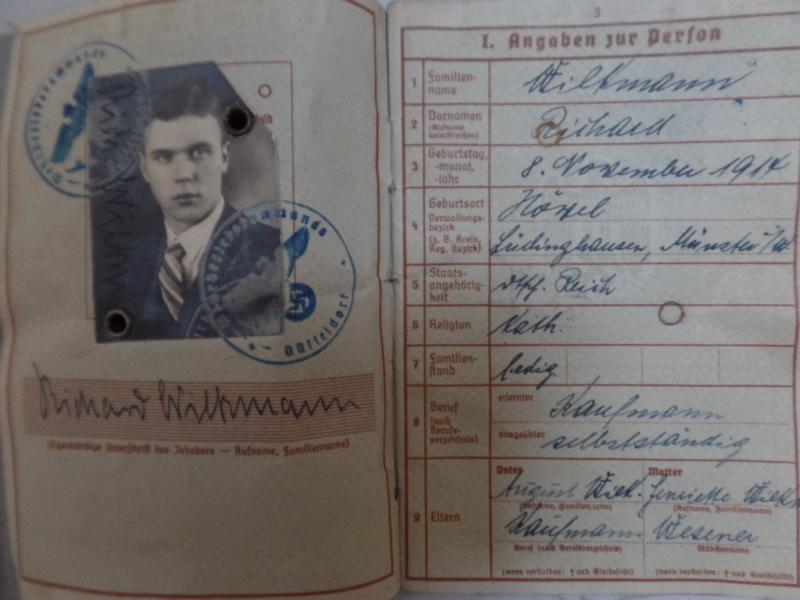 Wehrbezirkskommando
Wehrbezirkskommando
Düsseldorf
Richard Wilkmann
(Eigenhändige Unterschrift des Inhabers — Rufname, Familienname)
3
I. Angaben zur Person
1 Familienname Wilkmann
2 Vornamen (Rufname unterstreichen) Richard
3 Geburtstag, -monat, -jahr 8. November 1914
4 Geburtsort Verwaltungsbezirk (z. B. Kreis, Reg. Bezirk)
Lüdinghausen, Münster i/W
5 Staatsangehörigkeit dtsch. Reich
6 Religion Kath.
7 Familienstand ledig
8 Beruf (nach Berufsverzeichnis) erlernter Kaufmann
ausgeübter selbstständig
9 Eltern Vater Mutter
August Wilk. Henriette Wilkm
(Rufname, Familienname) (Rufname, Familienname)
Kaufmann Wesener
Beruf (nach Berufsverzeichnis) Mädchenname
(wenn verstorben: † und Sterbejahr) (wenn verstorben: † und Sterbejahr)